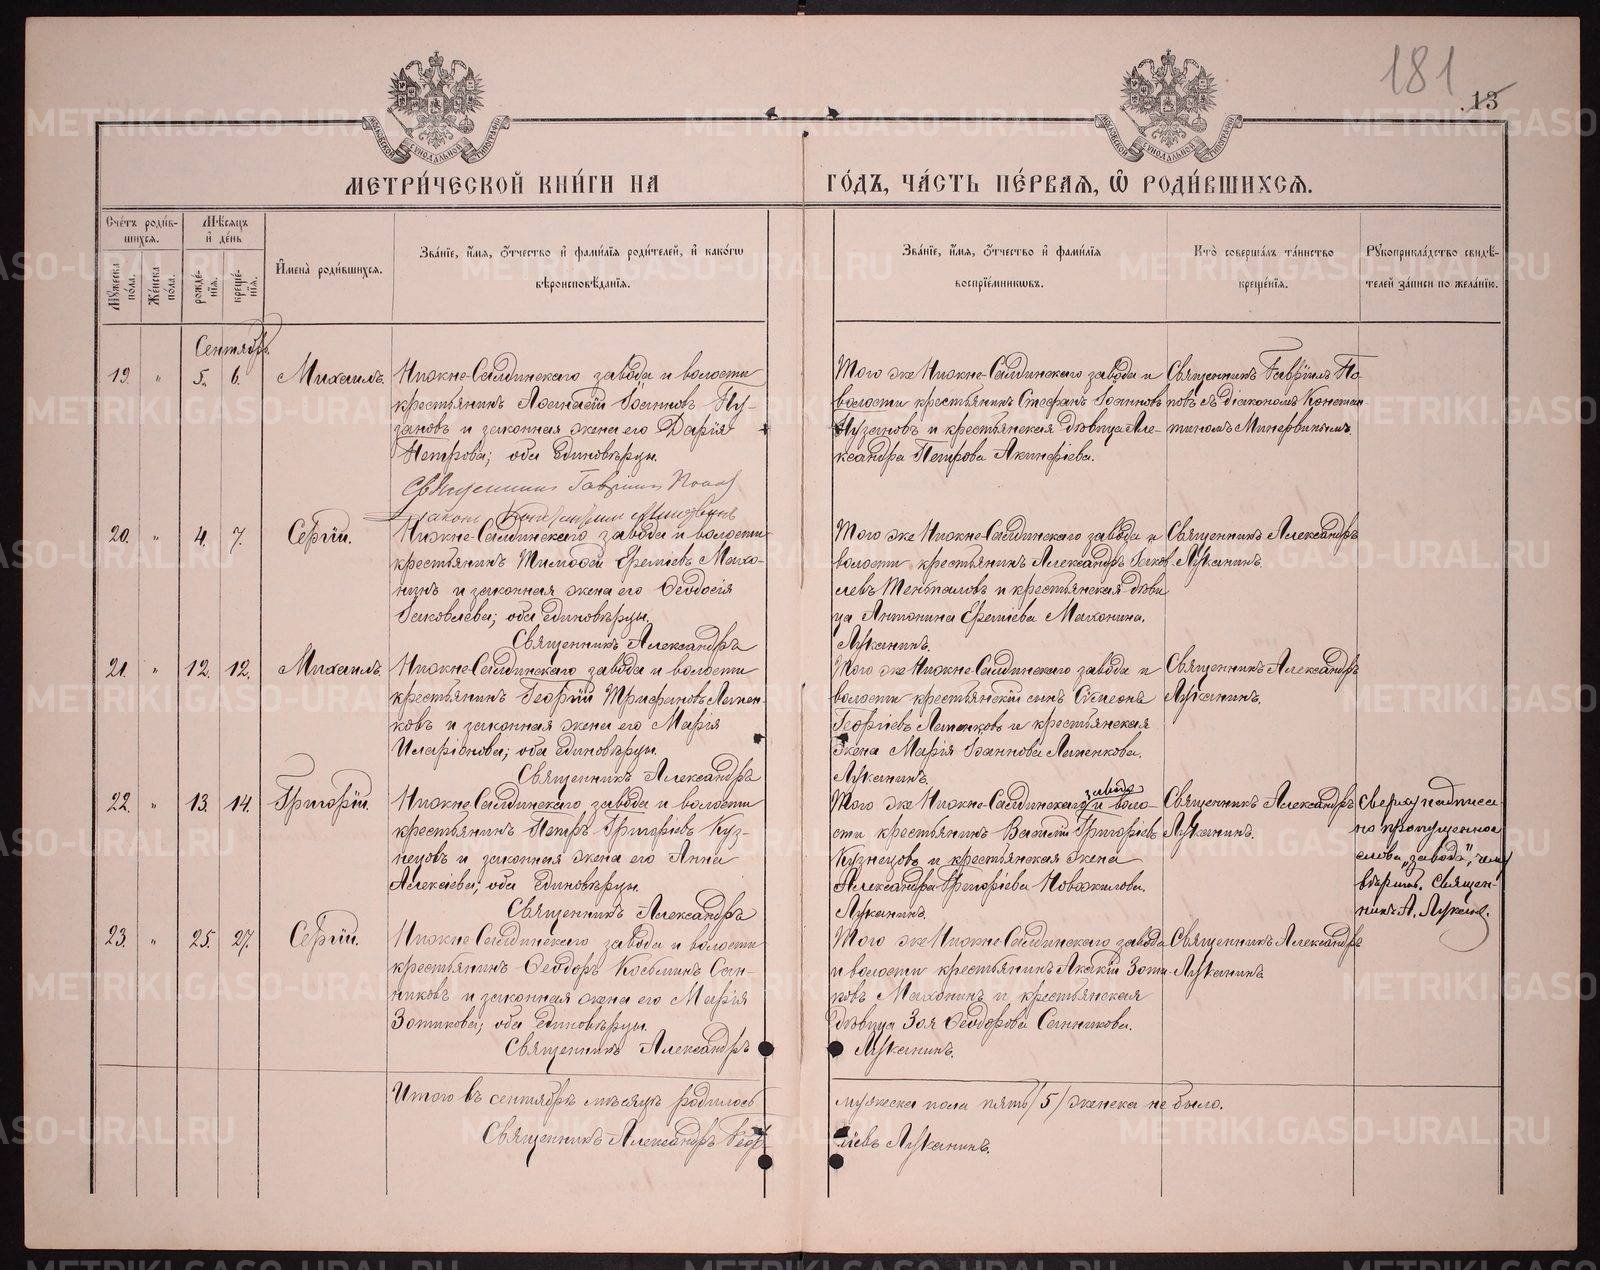 181
13
МЕТРИ́ЧЕСКОЙ КНИ́ГИ НА ГО́ДЪ, ЧА́СТЬ ПЕ́РВАЯ, Ѿ РОДИ́ВШИХСЯ.
Сче́тъ роди́в-
шихся.
Му́жеска по́ла.
Же́нска по́ла.
Мѣ́сяцъ и де́нь
рожде́-
нїя.
креще́-
нїя.
И҆мена̀ роди́вшихся.
Зва́нїе, и҆́мя, ѻ҆́тчество и҆ фами́лїя роди́телей, и҆ како́гѡ
вѣроисповѣ́данїя.
Зва́нїе, и҆́мя, ѻ҆́тчество и҆ фами́лїя
воспрїе́мникѡвъ.
Кто̀ соверша́лъ та́инство
креще́нїя.
Рꙋкоприкла́дство свидѣ́-
телей за́писи по жела́нїю.
Сентябрь.
19. " 5. 6. Михаилъ.
Нижне-Салдинскаго завода и волости
крестьянинъ Аѳанасій Іоанновъ Пу-
зановъ и законная жена его Дарія
Петрова; оба единовѣрцы.
Священникъ Гавріилъ Попов
Того же Нижне-Салдинскаго завода и
волости крестьянинъ Стефанъ Іоанновъ
Пузановъ и крестьянская дѣвица Але-
ксандра Петрова Акинфіева.
Священникъ Гавріилъ По-
повъ съ діакономъ Констан-
тиномъ Минервинымъ.
20. " 4. 7. Сергій.
Нижне-Салдинскаго завода и волости
крестьянинъ Тимоѳей Ереміевъ Махо-
нинъ и законная жена его Ѳеодосія
Іаковлева; оба единовѣрцы.
Священникъ Александръ
Того же Нижне-Салдинскаго завода и
волости крестьянинъ Александръ Іаков-
левъ и крестьянская дѣви
ца Антонина Ереміева Махонина.
Лукканинъ.
Священникъ Александръ
Лукканинъ.
21. " 12. 12. Михаилъ.
Нижне-Салдинскаго завода и волости
крестьянинъ Георгій Трифановъ Лапен-
ковъ и законная жена его Марія
Иларіонова; оба единовѣрцы.
Священникъ Александръ
Того же Нижне-Салдинскаго завода и
волости крестьянскій сынъ Симеонъ
Георгіевъ Лапенковъ и крестьянская
жена Марія Іоаннова Лапенкова.
Лукканинъ.
Священникъ Александръ
Лукканинъ.
22. " 13. 14. Григорій.
Нижне-Салдинскаго завода и волости
крестьянинъ Петръ Григоріевъ Куз-
нецовъ и законная жена его Анна
Алексіева; оба единовѣрцы.
Священникъ Александръ
завода
Того же Нижне-Салдинскаго и воло-
сти крестьянинъ Василій Григоріевъ
Кузнецовъ и крестьянская жена
Александра Григоріева Новожилова.
Лукканинъ.
Священникъ Александръ
Лукканинъ.
Сверху надписа-
но пропущенное
слово „завода",
вѣрить. Священ-
никъ А. Луккан.
23. " 25. 27. Сергій.
Нижне-Салдинскаго завода и волости
крестьянинъ Ѳеодоръ Косьминъ Сан-
никовъ и законная жена его Марія
Зотикова; оба единовѣрцы.
Священникъ Александръ
Того же Нижне-Салдинскаго завода
и волости крестьянинъ Акакій Зоти
ковъ Махонинъ и крестьянская
дѣвица Зоя Ѳеодорова Санникова.
Лукканинъ.
Священникъ Александръ
Лукканинъ
Итого въ сентябрѣ мѣсяцѣ родилось мужеска пола пять /5/ женска не было.
Священникъ Александръ Геор-
гіевъ Лукканинъ.
METRIKI.GASO-URAL.RU